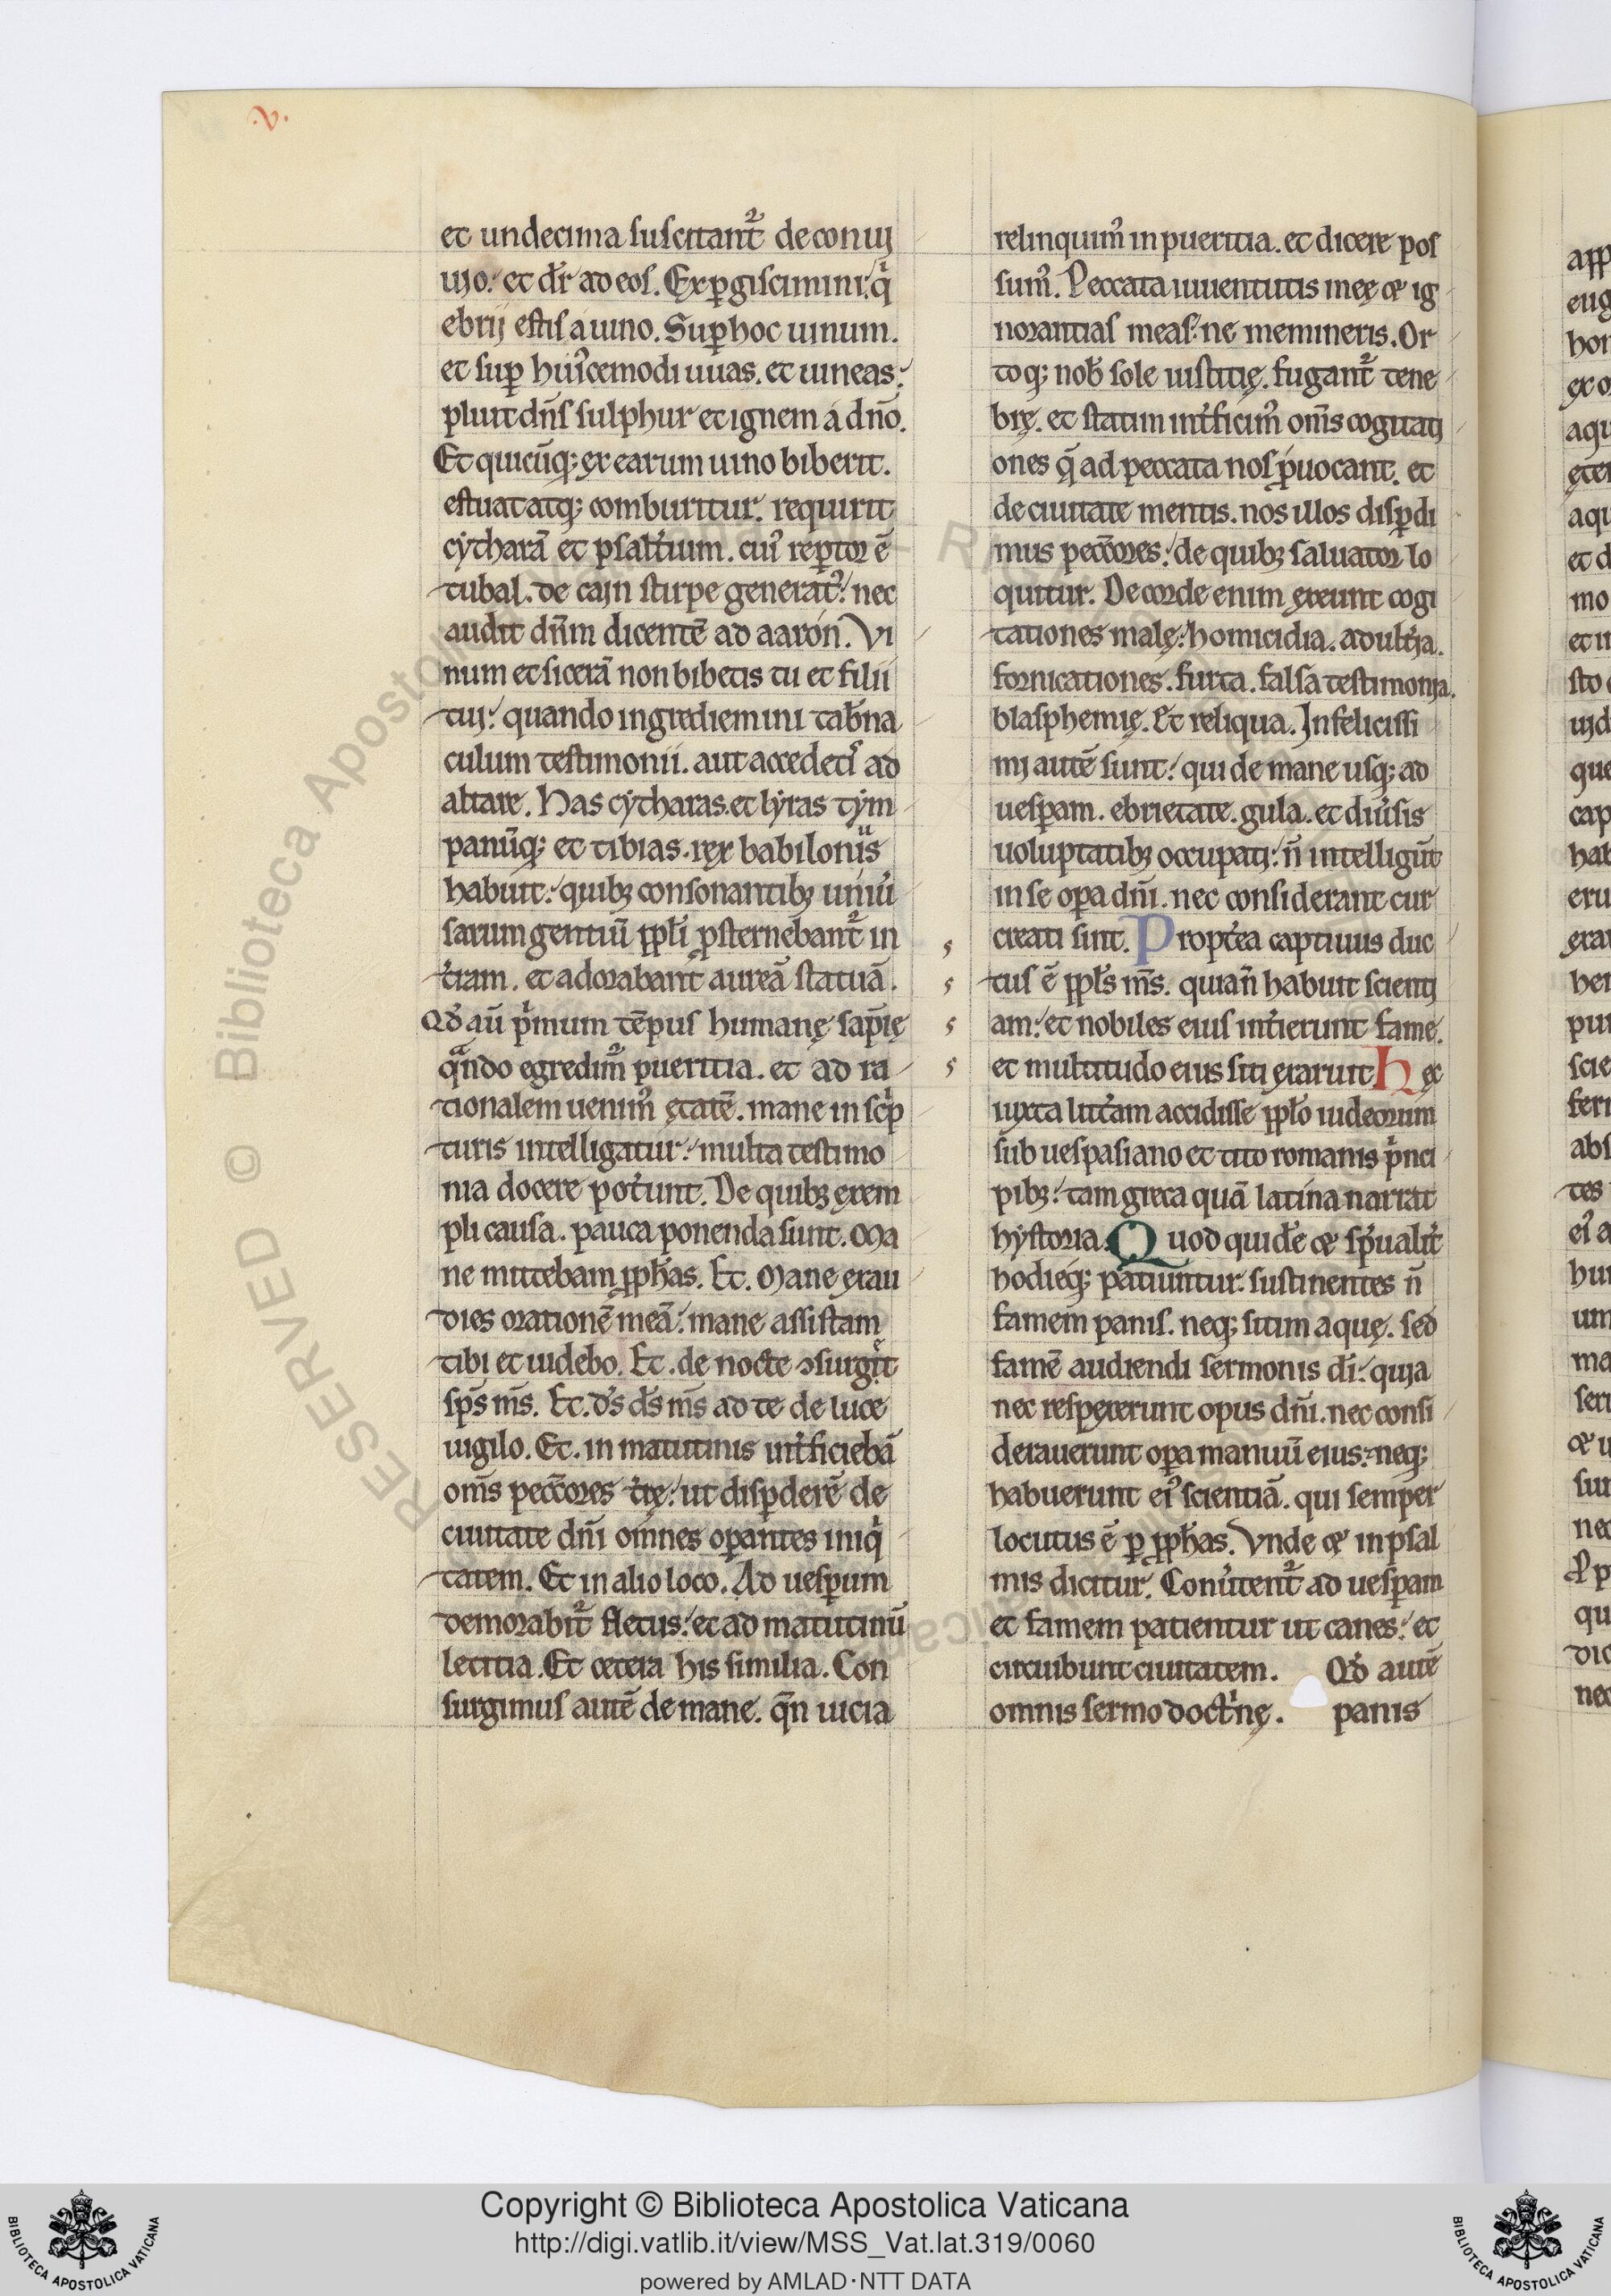 .v.
et undecima suscitant᷑ de conuı
uio. et dr̃ ad eos. Expgiscimini q̍
ebrij estis a uino. Sup hoc uinum.
et sup huꝰcemodi uuas. et uineas.
pluit dn̄s sulphur et ignem a dn̄o.
Et quicūq; ex earum uino biberit.
estuat atq; comburitur. requirit
cytharā et psalt̓ium. cuiꝰ reptor ē
tubal. de cain stirpe generatꝰ. nec
audit dn̄m dicentē ad aaron. Vi
num et sicerā non bibetis tu et filii
tui. quando ingrediemini tab̓na
culum testimonii. aut accedetis ad
altare. Has cytharas. et lyras tým
panūq; et tibias. rex babiloniꝰs
habuit. quibꝫ consonantibꝫ uniu̓
sarum gentiū ppl̓i ꝓsternebant᷑ in
t̓ram. et adorabant aureā statuā.
Qđ aū p̍mum tēpus humanę sapīę
qᵃndo egredimᷣ pueritia. et ad ra
tionalem uenimꝰ ętatē. mane in sc̍p
turis intelligatur. multa testimo
nia docere pot̓unt. De quibꝫ exem
pli causa. pauca ponenda sunt. Ma
ne mittebam ꝓph̓as. Et. Mane exau
dies orationē meā. mane assistam
tibi et uidebo. Et. de nocte ɔsurgit
sp̄s m̄s. Et. ds̓ ds̓ m̄s ad te de luce
uigilo. Et. in matutinis int̓ficiebā
om̄s pecc̄ores t̓rę. ut disꝑderē de
ciuitate dn̄i omnes oꝑantes iniq̍
tatem. Et in alio loco. Ad uesꝑum
demorabit᷑ fletus. et ad matutinū
letitia. Et cetera his similia. Con
surgimus autē de mane. qn̄ uicia
relinquimꝰ in pueritia. et dicere pos
sumꝰ. Peccata iuuentutis meę & ig
norantias meas ne memineris. Or
toq; nob̓ sole iustitię. fugant᷑ tene
brę. et statim int̓ficimꝰ om̄s cogitati
ones q̄ ad peccata nos ꝓuocant. et
de ciuitate mentis. nos illos disꝑdi
mus pecc̄ores. de quibꝫ saluator lo
quitur. De corde enim exeunt cogi
tationes malę. homicidia. adult̓ia.
fornicationes. furta. falsa testimonia.
blasphemię. Et reliqua. Infelicissi
mi autē sunt. qui de mane usq; ad
uesꝑam. ebrietate. gula. et diu̓sis
uoluptatibꝫ occupati. n̄ intelligūt
in se oꝑa dn̄i. nec considerant cur
creati sint. Propt̓ea captiuus duc
tus ē ppl̓s m̄s. quia n̄ habuit scienti
am. et nobiles eius int̓ierunt fame.
et multitudo eius siti exaruit Hęc
iuxta litt̓am accidisse ppl̓o iudeorum
sub uespasiano et tito romanis p̍nci
pibꝫ. tam greca quā latina narrat
hystoria. Quod quidē & sp̓ualit̓
hodieq; patiuntur. sustinentes n̄
famem panis. neq; sitim aquę. sed
famē audiendi sermonis di̓. quia
nec respexerunt opus dn̄i. nec consi
derauerunt oꝑa manuū eius. neq;
habuerunt eiꝰ scientiā. qui semper
locutus ē ꝑ ꝓph̓as. Vnde & in psal
mis dicitur. Conu̓tent᷑ ad uesꝑam
et famem patientur ut canes. et
circuibunt ciuitatem. Qđ autē
omnis sermo doct̓nę. panis
Copyright © Biblioteca Apostolica Vaticana
http://digi.vatlib.it/view/MSS_Vat.lat.319/0060
powered by AMLAD·NTT DATA